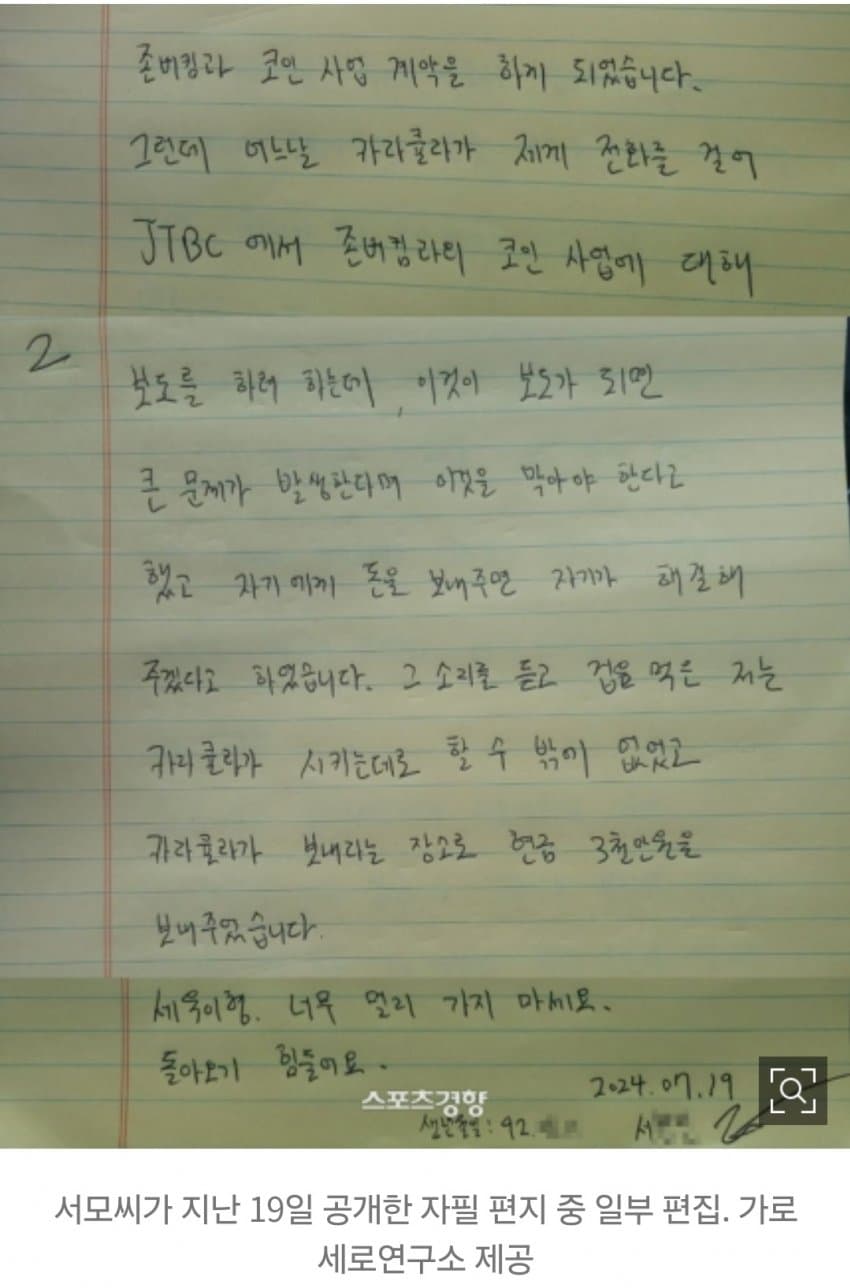 존버킴과 코인 사업 계약을 하게 되었습니다.
그런데 어느날 카라큘라가 제게 전화를 걸어
JTBC 에서 존버킴과의 코인 사업에 대해
2
보도를 하려 하는데, 이것이 보도가 되면
큰 문제가 발생한다며 이것을 막아야 한다고
했고 자기에게 돈을 보내주면 자기가 해결해
주겠다고 하였습니다. 그 소리를 듣고 겁을 먹은 저는
카라큘라가 시키는데로 할 수 밖에 없었고
카라큘라가 보내라는 장소로 현금 3천만원을
보내주었습니다.
세욱이형. 너무 멀리 가지 마세요.
돌아오기 힘들어요.
2024.07.19
스포츠경향
생년월일: 92.
서
서모씨가 지난 19일 공개한 자필 편지 중 일부 편집. 가로
세로연구소 제공